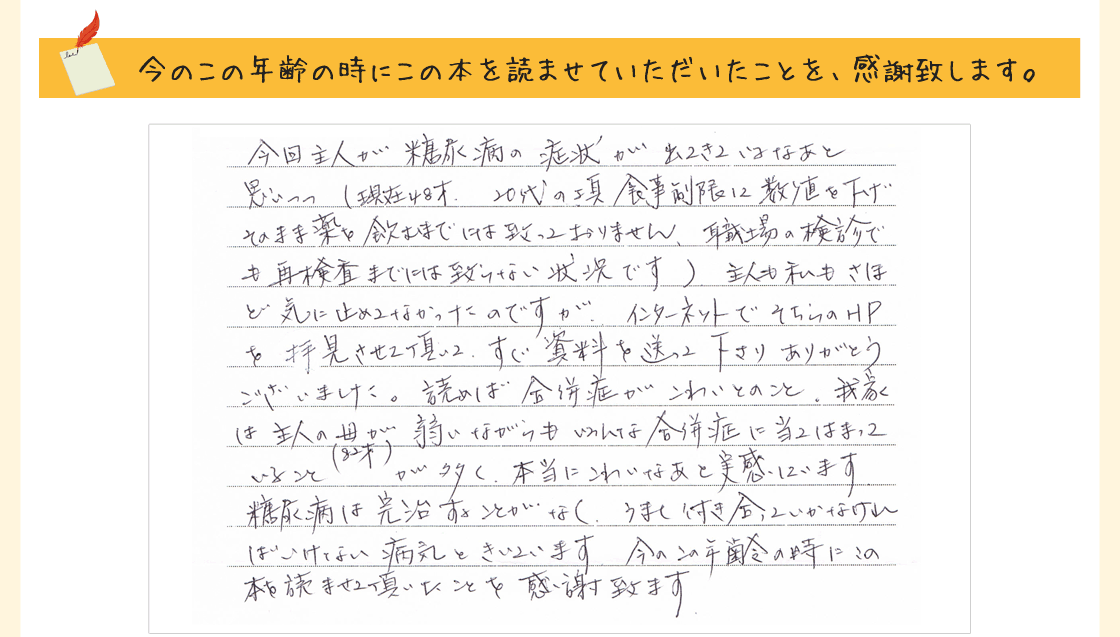 今のこの年齢の時にこの本を読ませていただいたことを、感謝致します。
今回主人が糖尿病の症状が出てきているなあと
思いつつ(現在48才. 20代の頃 食事制限にて数値を下げ
そのまま薬を飲むまでには至っておりません、職場の検診で
も再検査までには至らない状況です) 主人も私もさほ
ど気に止めてなかったのですが. インターネットでそちらのHP
を拝見させて頂いて. すぐ資料を送って下さりありがとう
ございました。読めば合併症がこわいとのこと. 我家
は主人の母が弱いながらもいろんな合併症に当てはまって
(82才)
いることが多く. 本当にこわいなあと実感しています.
糖尿病は完治することがなく. うまく付き合っていかなけれ
ばいけない病気ときいています 今のこの年齢の時にこの
本を読ませて頂いたことを感謝致ます.